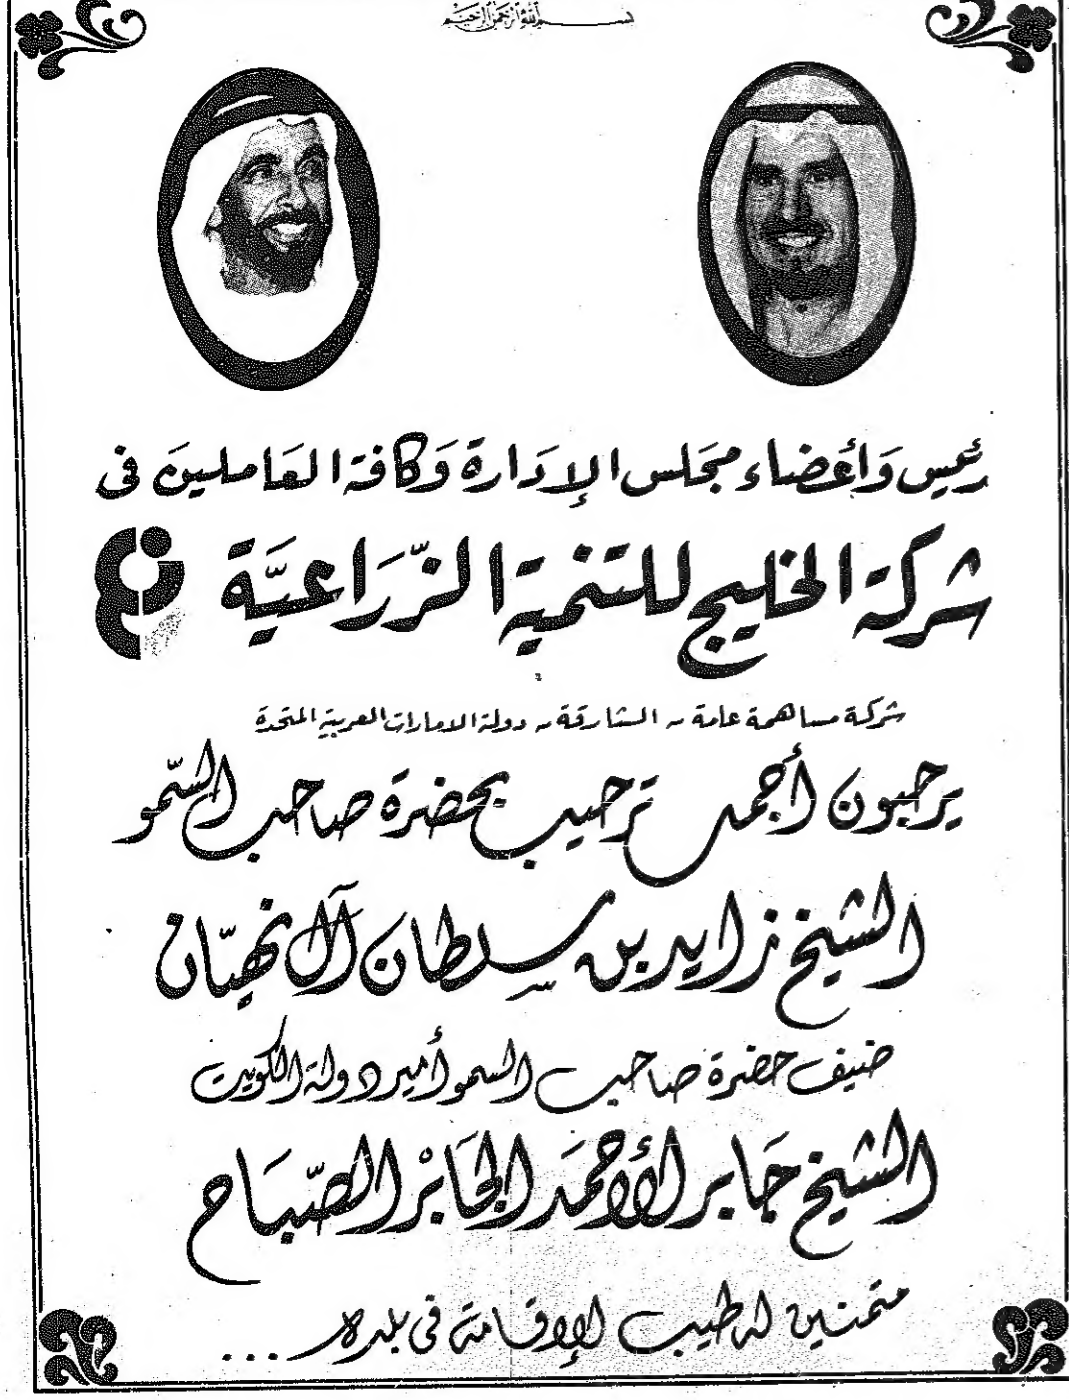 بسم الله الرحمن الرحيم
رئيس وَأعضاء مجَلس الإدَارة وَكافة العَاملينَ في
شركة الخليج للتنمية الزّرَاعيَّة
شركة مساهمة عامة - الشارقة - دولة الامارات العربية المتحدة
يرحبون أجمل ترحيب بحضرة صاحب السّمو
الشيخ زايد بن سلطان آل نهيّان
ضيف حضرة صاحب السمو أمير دولة الكويت
الشيخ جَابر الأحمَد الجَابْر الصّبَاح
متمنين له طيب الإقامة في بلده ...